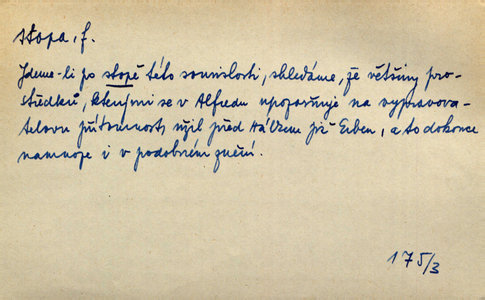 stopa, f.
Jdeme-li po stopě této souvislosti, shledáme, že většiny pro-
středků, kterými se v Alfredu upozorňuje na vypravova-
telovu přítomnost, užil před Hálkem již Erben, a to dokonce
namnoze i v podobném znění.
175/3